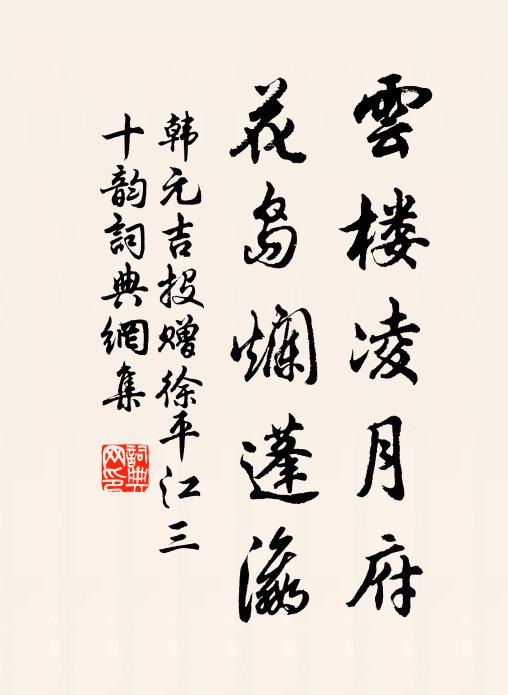 雲楼凌月府
花岛爛蓬瀛
韩元吉投赠徐平江三
十韵詞典網集
詞典網印